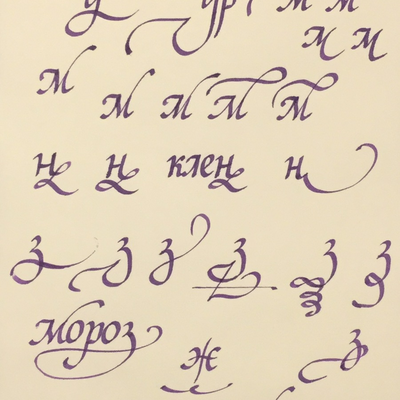 м м
м м
м м м м м
н н клен н
з з з з з з
мороз
ж з